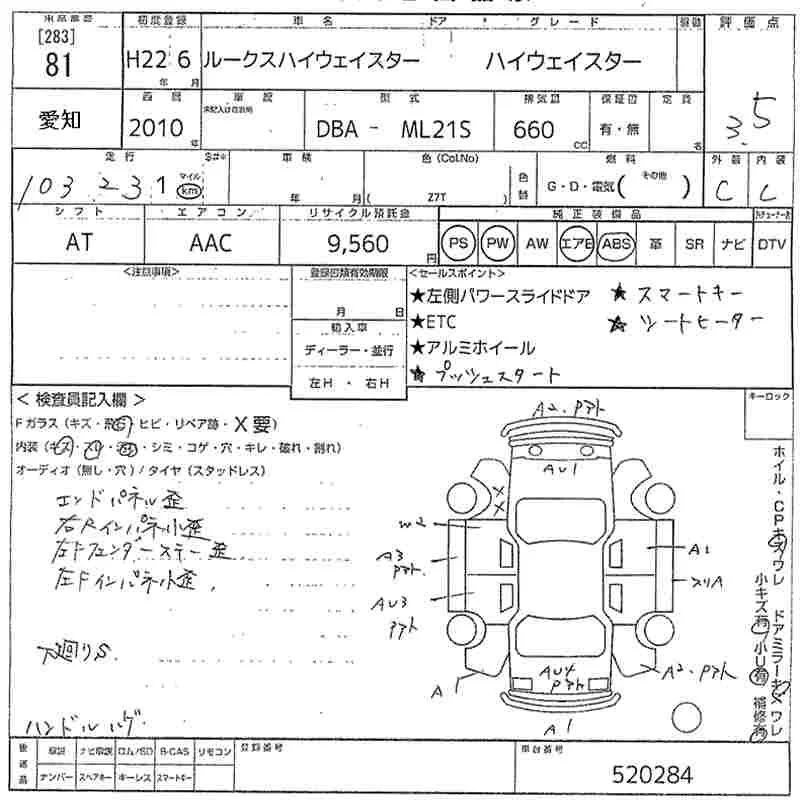 出品番号 初度登録 車名 ドア・グレード 駆動 評価点
[283]
81 H22 6 ルークスハイウェイスター ハイウェイスター
年 月
愛知 西暦 車歴 型式 排気量 保証書 定員
未記入は自家用
2010 DBA - ML21S 660 有・無 3.5
年 CC 名
走行 車検 色(Col.No) 色替 燃料 外装 内装
103 231 マイル km 年 月 ( Z7T ) G・D・電気( その他 ) C C
シフト エアコン リサイクル預託金 純正装備品
AT AAC 9,560 円 PS PW AW エアB ABS 革 SR ナビ DTV
<注意事項> 登録書類有効期限 <セールスポイント>
月 日
★左側パワースライドドア ★スマートキー
★ETC ★シートヒーター
輸入車
ディーラー・並行
★アルミホイール
左H・右H
★プッシュスタート
<検査員記入欄> キーロック
Fガラス(キズ・飛石・ヒビ・リペア跡・X要)
内装(キズ・スリ・汚・シミ・コゲ・穴・キレ・破れ・割れ)
オーディオ(無し・穴)/タイヤ(スタッドレス)
エンドパネル歪
右Rインパネ小歪
左Fフェンダーステー歪
左Fインパネ小歪
下廻りS
ハンドルハゲ
A2.Pアト
AU1
X
X
W2
A3
Pアト.
A1
スリA
AU3
Pアト
AU4
Pアト
A1
A2.Pアト
A1
ホイル・CPキズワレ ドアミラーキズワレ
小キズ有 小U有 補修有
後送品 取説 ナビ取説 ロム/SD B-CAS リモコン 登録番号 車台番号
ナンバー スペアキー キーレス スマートキー 520284